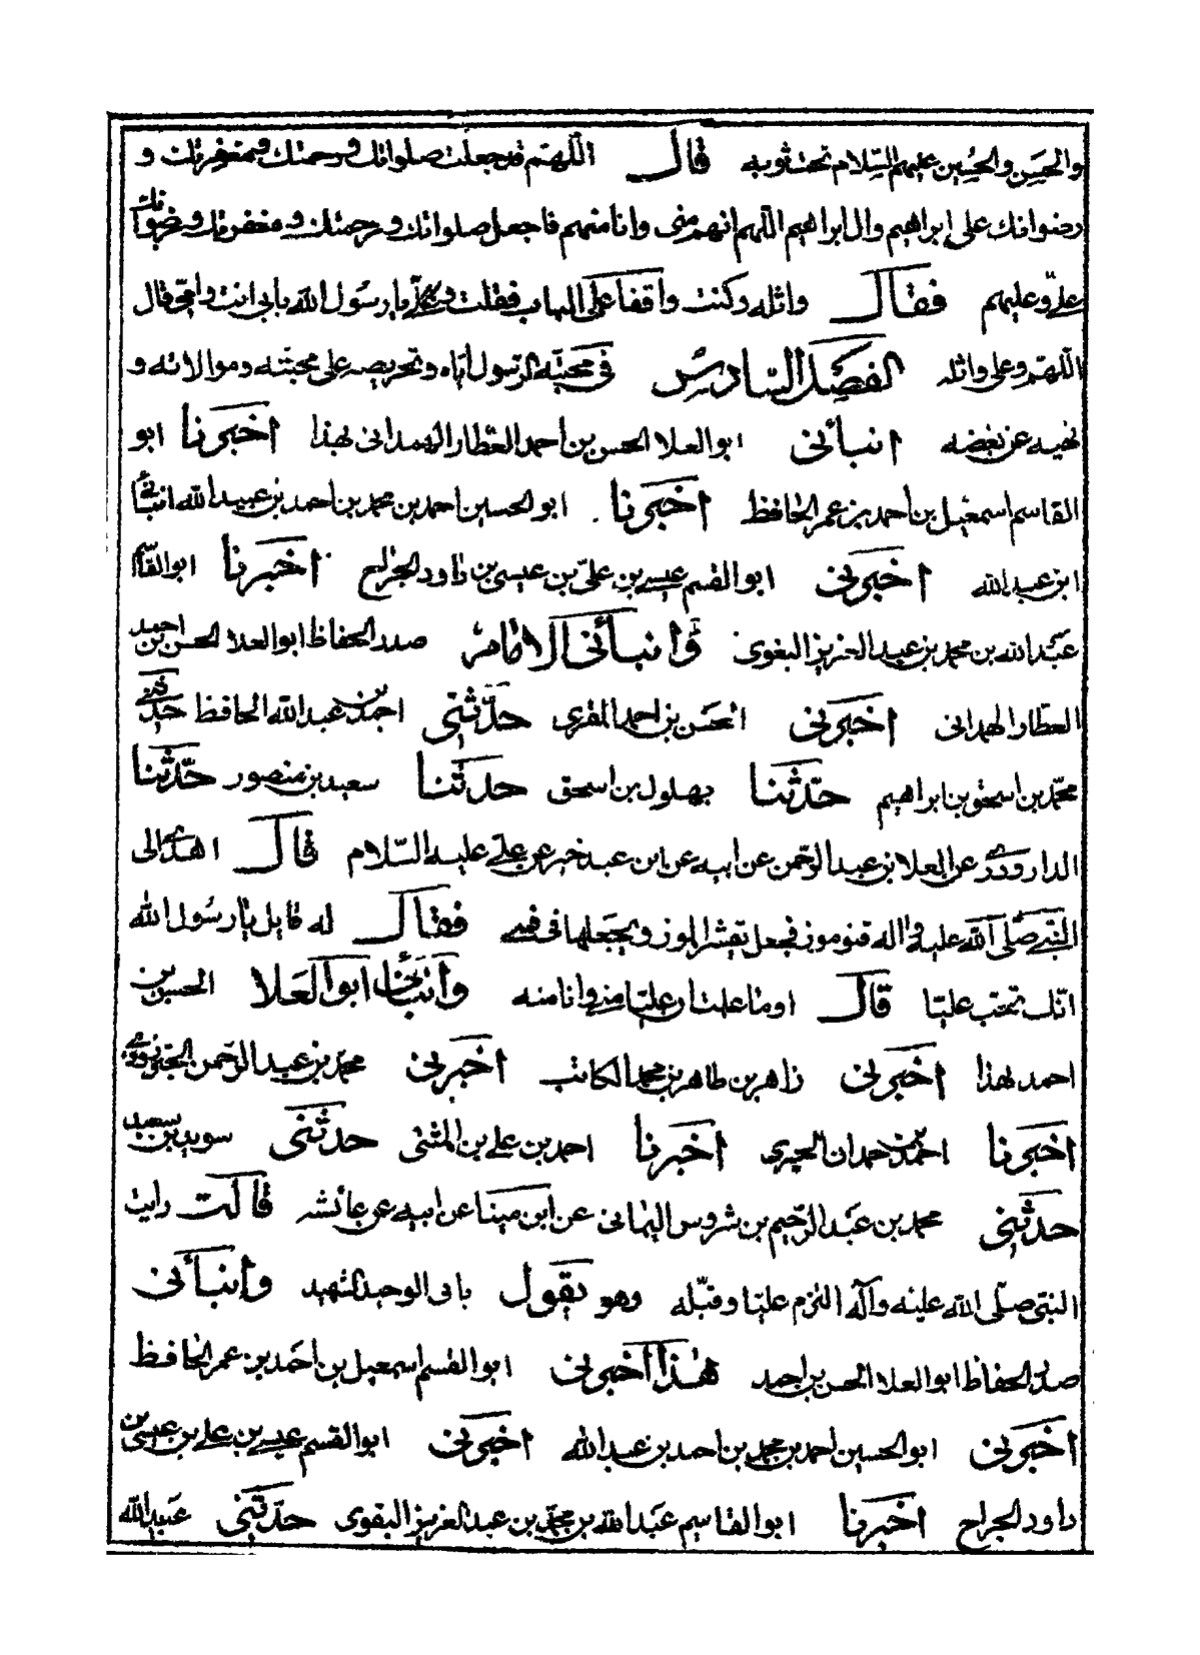 والحسن والحسين عليهم السلام تحت ثوبه قال اللهم قد جعلت صلواتك ورحمتك ومغفرتك و
رضوانك على إبراهيم وال ابراهيم اللهم انهم منى وانا منهم فاجعل صلواتك ورحمتك ومغفرتك ورضوانك
علي وعليهم فقال واثله وكنت واقفا على الباب فقلت وعلي يا رسول الله بابى انت وامي قال
اللهم وعلى واثله الفصل السادس في محبته الرسول اياه وتحريصه على محبته وموالاته و
نهيه عن بغضه انبأنى ابو العلا الحسن بن احمد العطار الهمدانى بهذا اخبرنا ابو
القاسم اسمعيل بن أحمد بن عمر الحافظ اخبرنا ابو الحسين احمد بن محمد بن احمد بن عبيد الله انبأني
ابن عبد الله اخبرني ابو القسم عيسى بن علي بن عيسى بن داود الجراح اخبرنا ابو القاسم
عبد الله بن محمد بن عبد العزيز البغوى وأنبأنى الامام صدر الحفاظ ابو العلا الحسن بن احمد
العطار الهمدانى اخبرنى الحسن بن احمد المقرى حدثنى احمد بن عبد الله الحافظ حدثني
محمد بن اسحق بن ابراهيم حدثنا بهلول بن اسحق حدثنا سعيد بن منصور حدثنا
الداروردى عن العلا بن عبد الرحمن عن ابيه عن ابن عبد خير عن علي عليه السلام قال اهدى الى
النبي صلى الله عليه واله قنو موز فجعل يقشر الموز ويجعلها فى فمي فقال له قايل يا رسول الله
انك تحب عليا قال اوما علمت ان عليا مني وانا منه وانبأنى ابو العلا الحسن بن
احمد بهذا اخبرنى زاهر بن طاهر بن محمد الكاتب اخبرنى محمد بن عبد الرحمن الجنزرودى
اخبرنا احمد بن حمدان الحيرى اخبرنا احمد بن علي بن المثنى حدثنى سويد بن سعيد
حدثنى محمد بن عبد الرحيم بن شروس اليمانى عن ابن مينا عن ابيه عن عائشه قالت رايت
النبى صلى الله عليه وآله التزم عليا وقبله وهو يقول بابى الوحيد الشهيد وانبأنى
صدر الحفاظ ابو العلا الحسن بن احمد هذا اخبرنى ابو القسم اسمعيل بن احمد بن عمر الحافظ
اخبرنى ابو الحسين احمد بن محمد بن احمد بن عبد الله اخبرنى ابو القسم عيسى بن علي بن عيسى بن
داود الجراح اخبرنا ابو القاسم عبد الله بن محمد بن عبد العزيز البغوى حدثنى عبيد الله